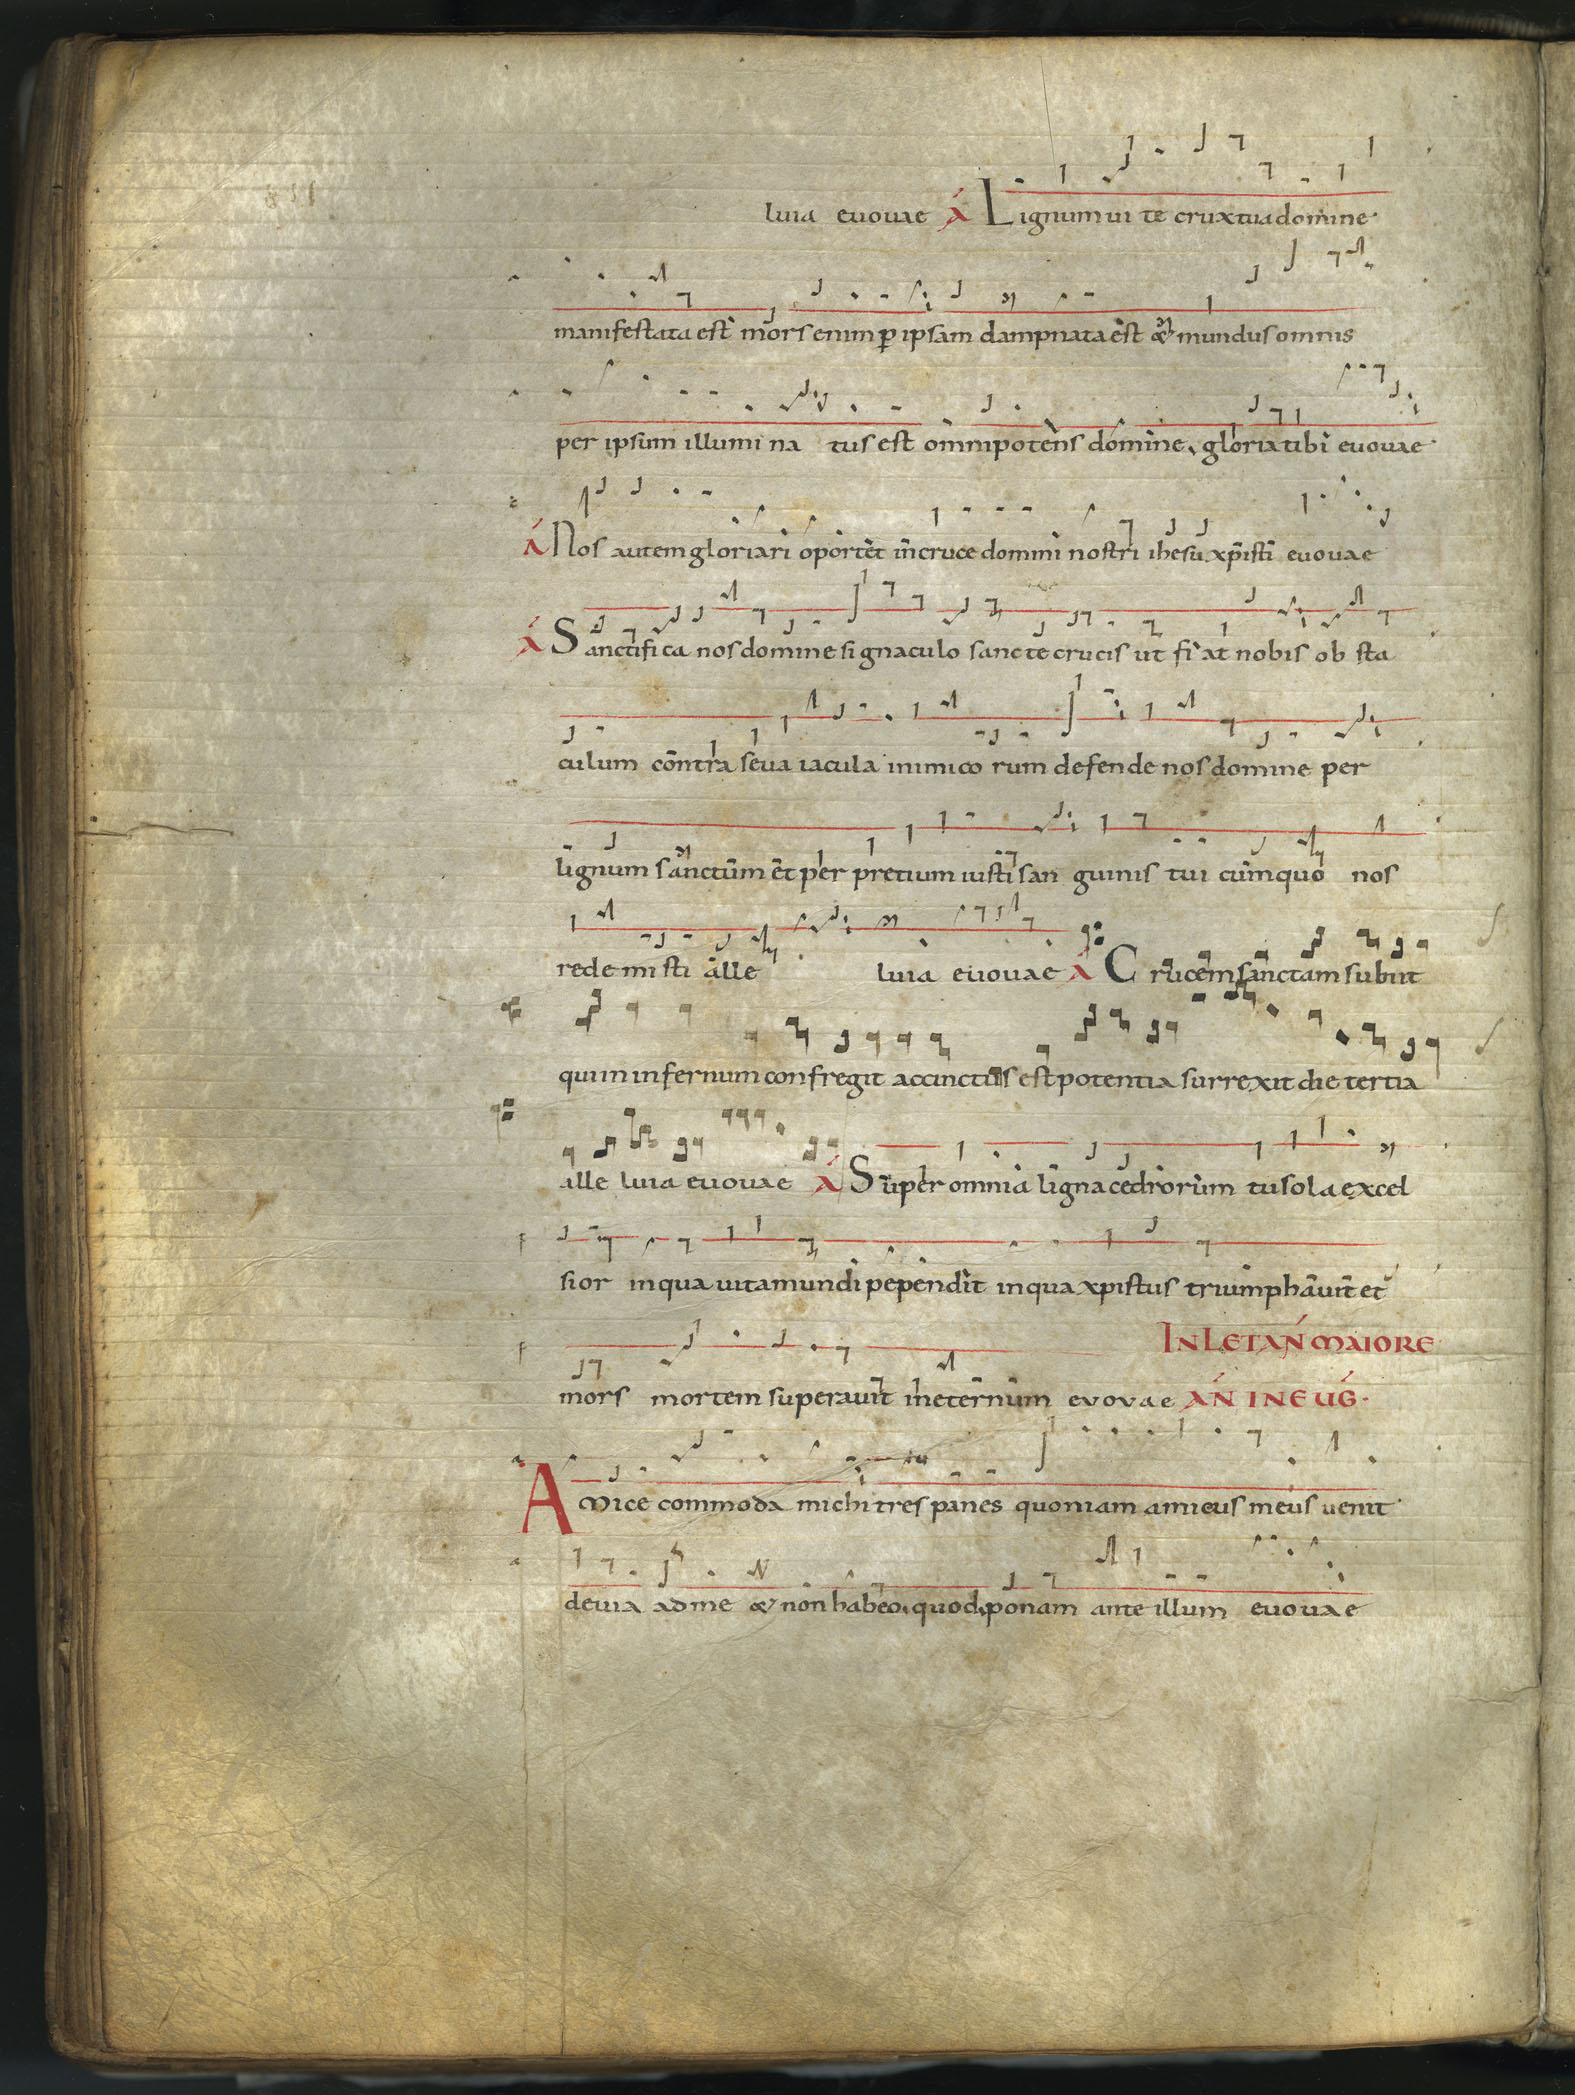 luia euouae A Lignum ui te crux tua domine·
manifestata est mors enim p ipsam dampnata est & mundus omnis
per ipsum illumi na tus est omnipotens domine, gloria tibi euouae·
A Nos autem gloriari oportet in cruce domini nostri ihesu xpisti euouae
A Sanctifi ca nos domine si gnaculo sanc te crucis ut fi at nobis ob sta
culum contra seua iacula inimico rum defende nos domine per
lignum sanctum et per pretium iusti san guinis tui cum quo nos
rede mi sti alle luia euouae A C rucem sanctam subiit
qui in infernum confregit accinctus est potentia surrexit die tertia
alle luia euouae A Super omnia ligna cedrorum tu sola excel
sior in qua uita mundi pependit in qua xpistus triumphauit et
IN LETAN MAIORE
mors mortem superauit in eternum evovae AN IN EUG·
Amice commoda michi tres panes quoniam amicus meus uenit·
de uia ad me & non habeo, quod ponam ante illum euouae